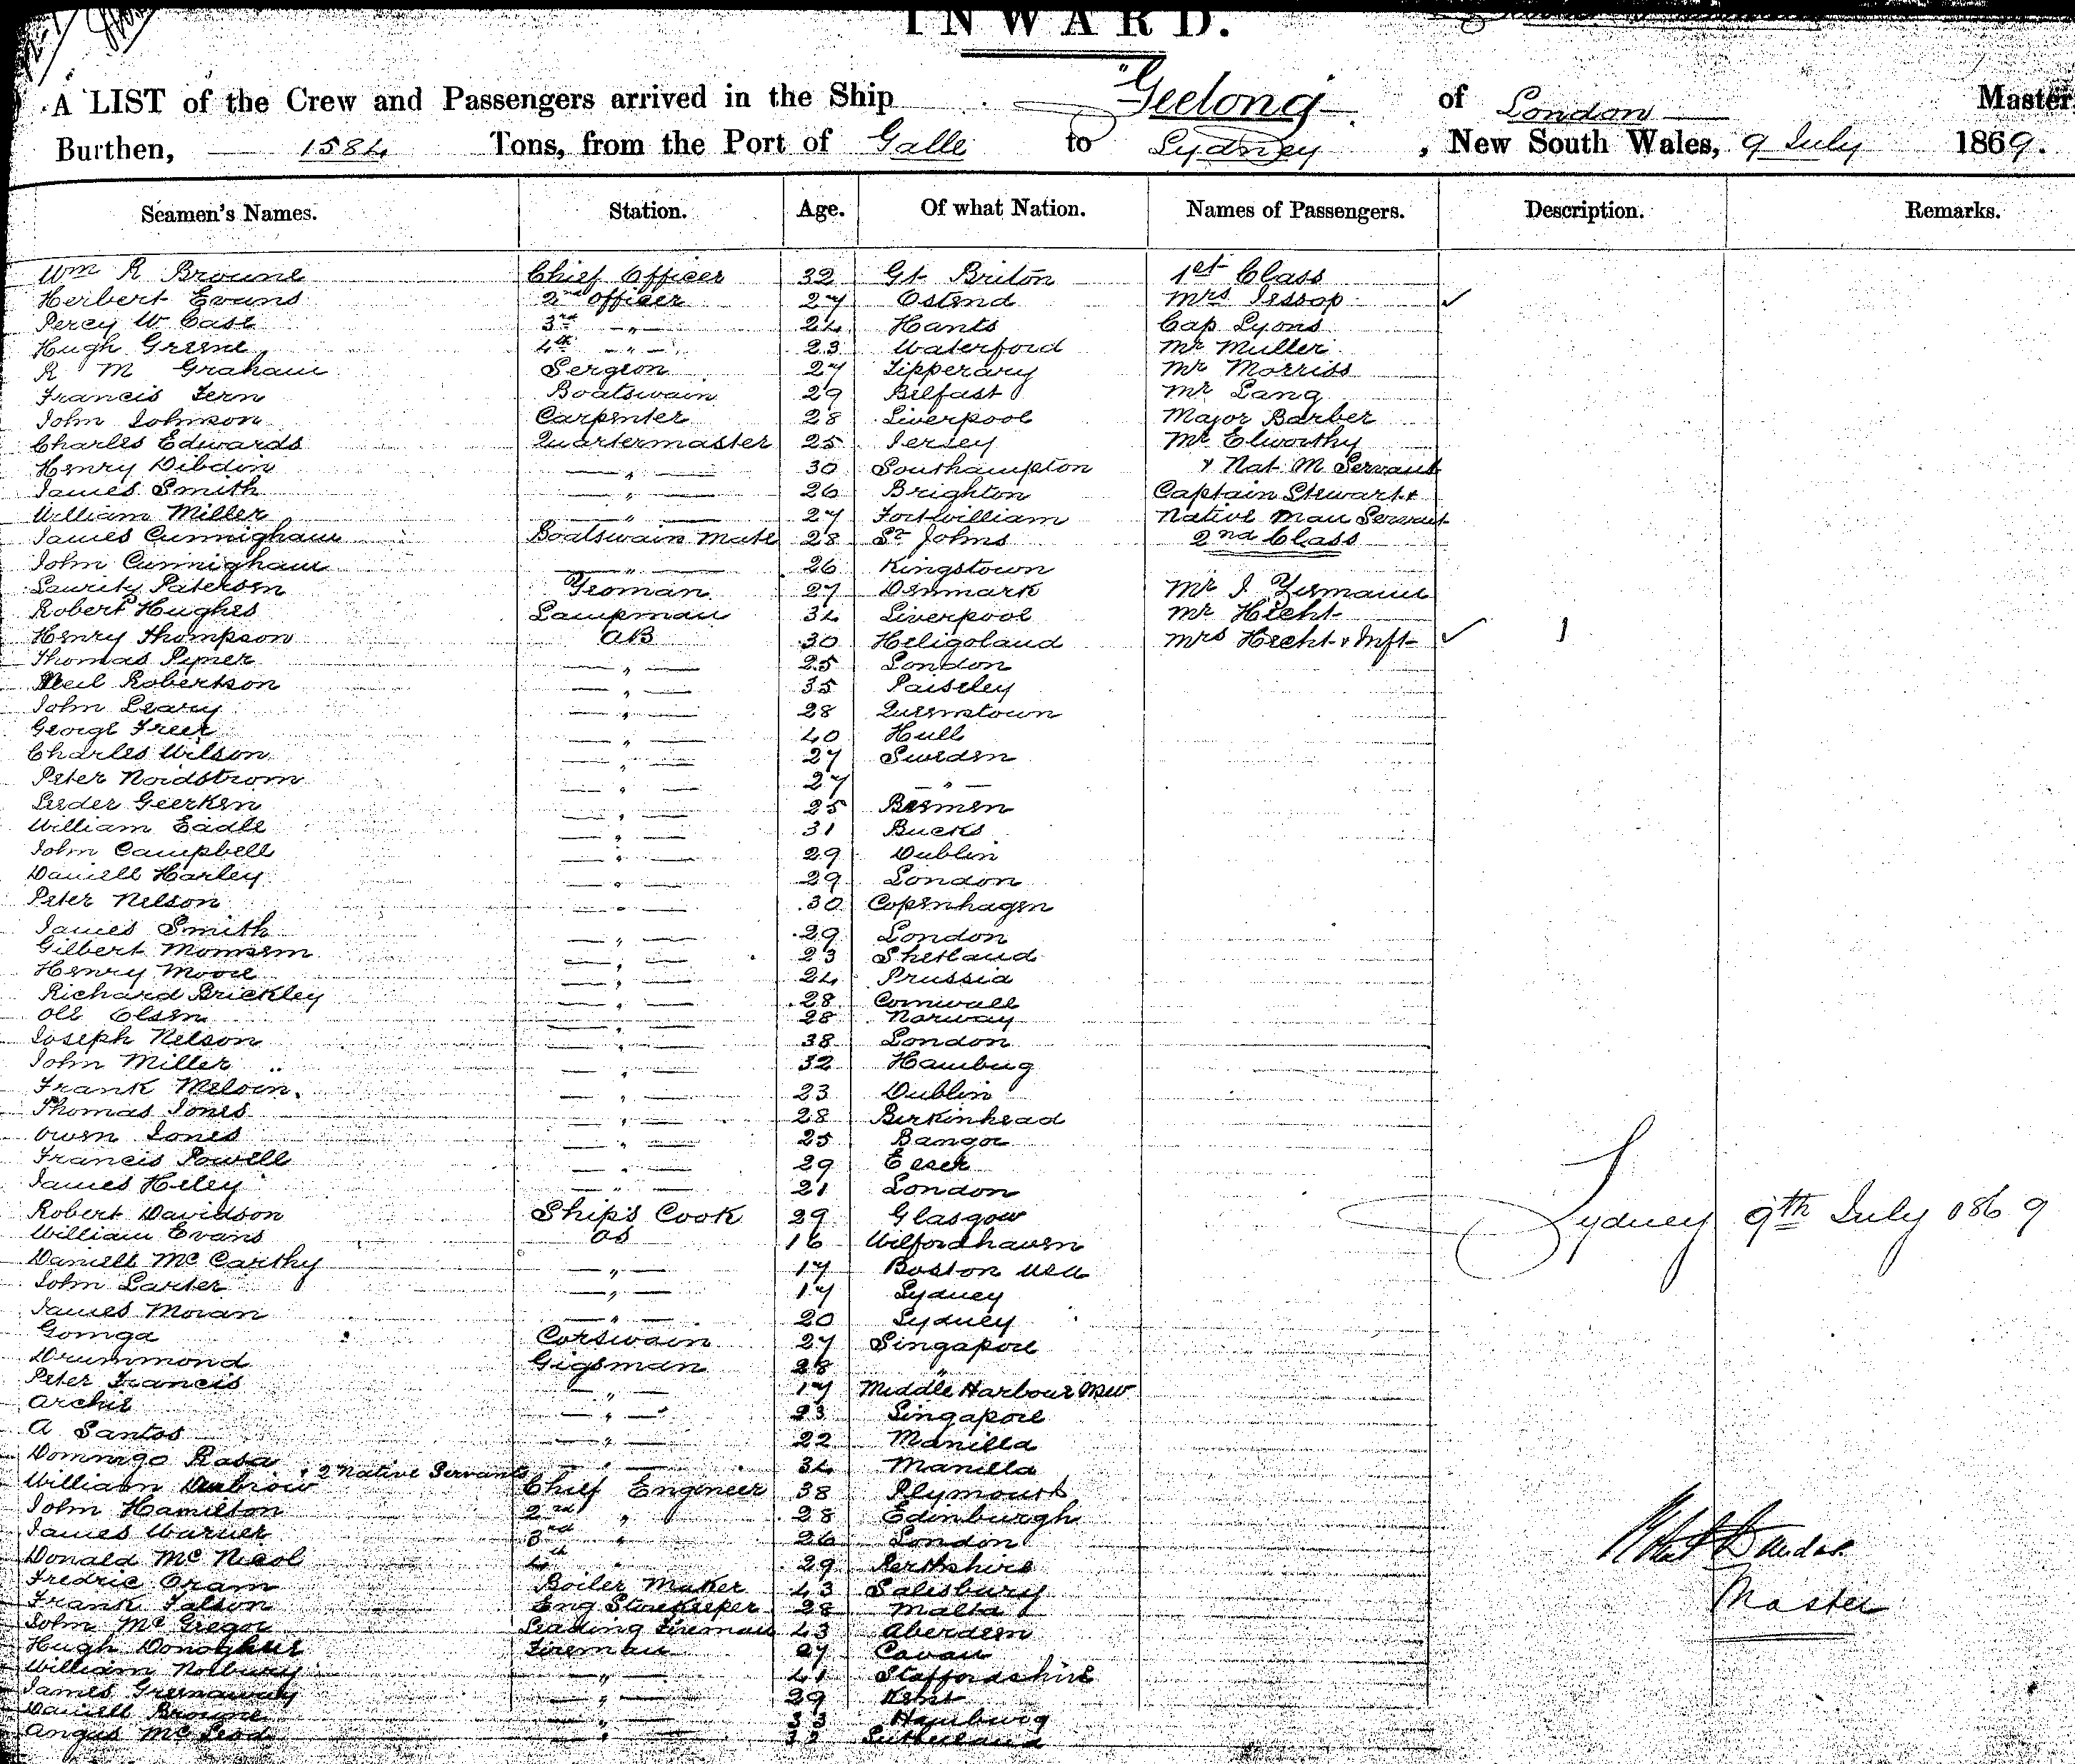 INWARD.
A LIST of the Crew and Passengers arrived in the Ship "Geelong of London Master
Burthen, 1584 Tons, from the Port of Galle to Sydney, New South Wales, 9 July 1869.
Seamen's Names. Station. Age. Of what Nation. Names of Passengers. Description. Remarks.
Wm R Broune Chief Officer 32 Gt Briton 1st Class
Herbert Evans 2nd officer 27 Ostend Mrs Jessop ✓
Percy W Case 3rd " 24 Hants Cap Lyons
Hugh Greene 4th " 23 Waterford Mr Muller
R M Graham Sergeon 27 Tipperary Mr Morriss
Francis Fern Boatswain 29 Belfast Mr Lang
John Johnson Carpenter 28 Liverpool Major Barber
Charles Edwards Quartermaster 25 Jersey Mr Elworthy
Henry Dibdin " 30 Southampton & Nat M Servant
James Smith " 26 Brighton Captain Stewart &
William Miller " 27 Fortwilliam Native Man Servant
James Cunnigham Boatswain Mate 28 St Johns 2nd Class
John Cunnigham " 26 Kingstown
Lauritz Patersen Yeoman 27 Denmark Mr J
Robert Hughes Lampman 34 Liverpool Mr Hecht
Henry Thompson AB 30 Heligoland Mrs Hecht & Inft ✓ 1
Thomas Pyner " 25 London
Neil Robertson " 35 Paiseley
John Leary " 28 Queenstown
George Freer " 40 Hull
Charles Wilson " 27 Sweden
Peter Nordstrom " 27 "
Leeder Geerken " 25 Bremen
William Eadle " 31 Bucks
John Campbell " 29 Dublin
Daniell Harley " 29 London
Peter Nelson " 30 Copenhagen
James Smith " 29 London
Gilbert " 23 Shetland
Henry Moore " 24 Prussia
Richard Brickley " 28 Cornwall
Ole Olsen " 28 Norway
Joseph Nelson " 38 London
John Miller " 32 Hambug
Frank Melvin. " 23 Dublin
Thomas Jones " 28 Birkinhead
Owen Jones " 25 Bangor
Francis Powell " 29 Essex
James Heley " 21 London
Robert Davidson Ship's Cook 29 Glasgow
William Evans OS 16 Milfordhaven
Daniell McCarthy " 17 Boston USA
John Larter " 17 Sydney
James Moran " 20 Sydney
Gomga Corswain 27 Singapore
Drummond Gigsman 28 "
Peter Francis " 17 Middle Harbour NSW
Archie " 23 Singapore
A Santos " 22 Manilla
Domnigo Rasa " 34 Manilla
William & 2 Native Servants Chief Engineer 38 Plymouth
John Hamilton 2nd " 28 Edinburgh
James Warner 3rd " 26 London
Donald McNicol 4th " 29 Perthshire
Fredric Oram Boiler Maker 43 Salisbury
Frank Falson Eng Storekeeper 28 Malta
John McGregor Leading Fireman 43 Aberdeen
Hugh Donoghue Fireman 27 Cavan
William Norbury " 41 Staffordshire
James Greenaway " 29 Kent
Daniell Broune " 33 Hamburg
Angus McLeod " Sutherland
Sydney 9th July 1869
Master